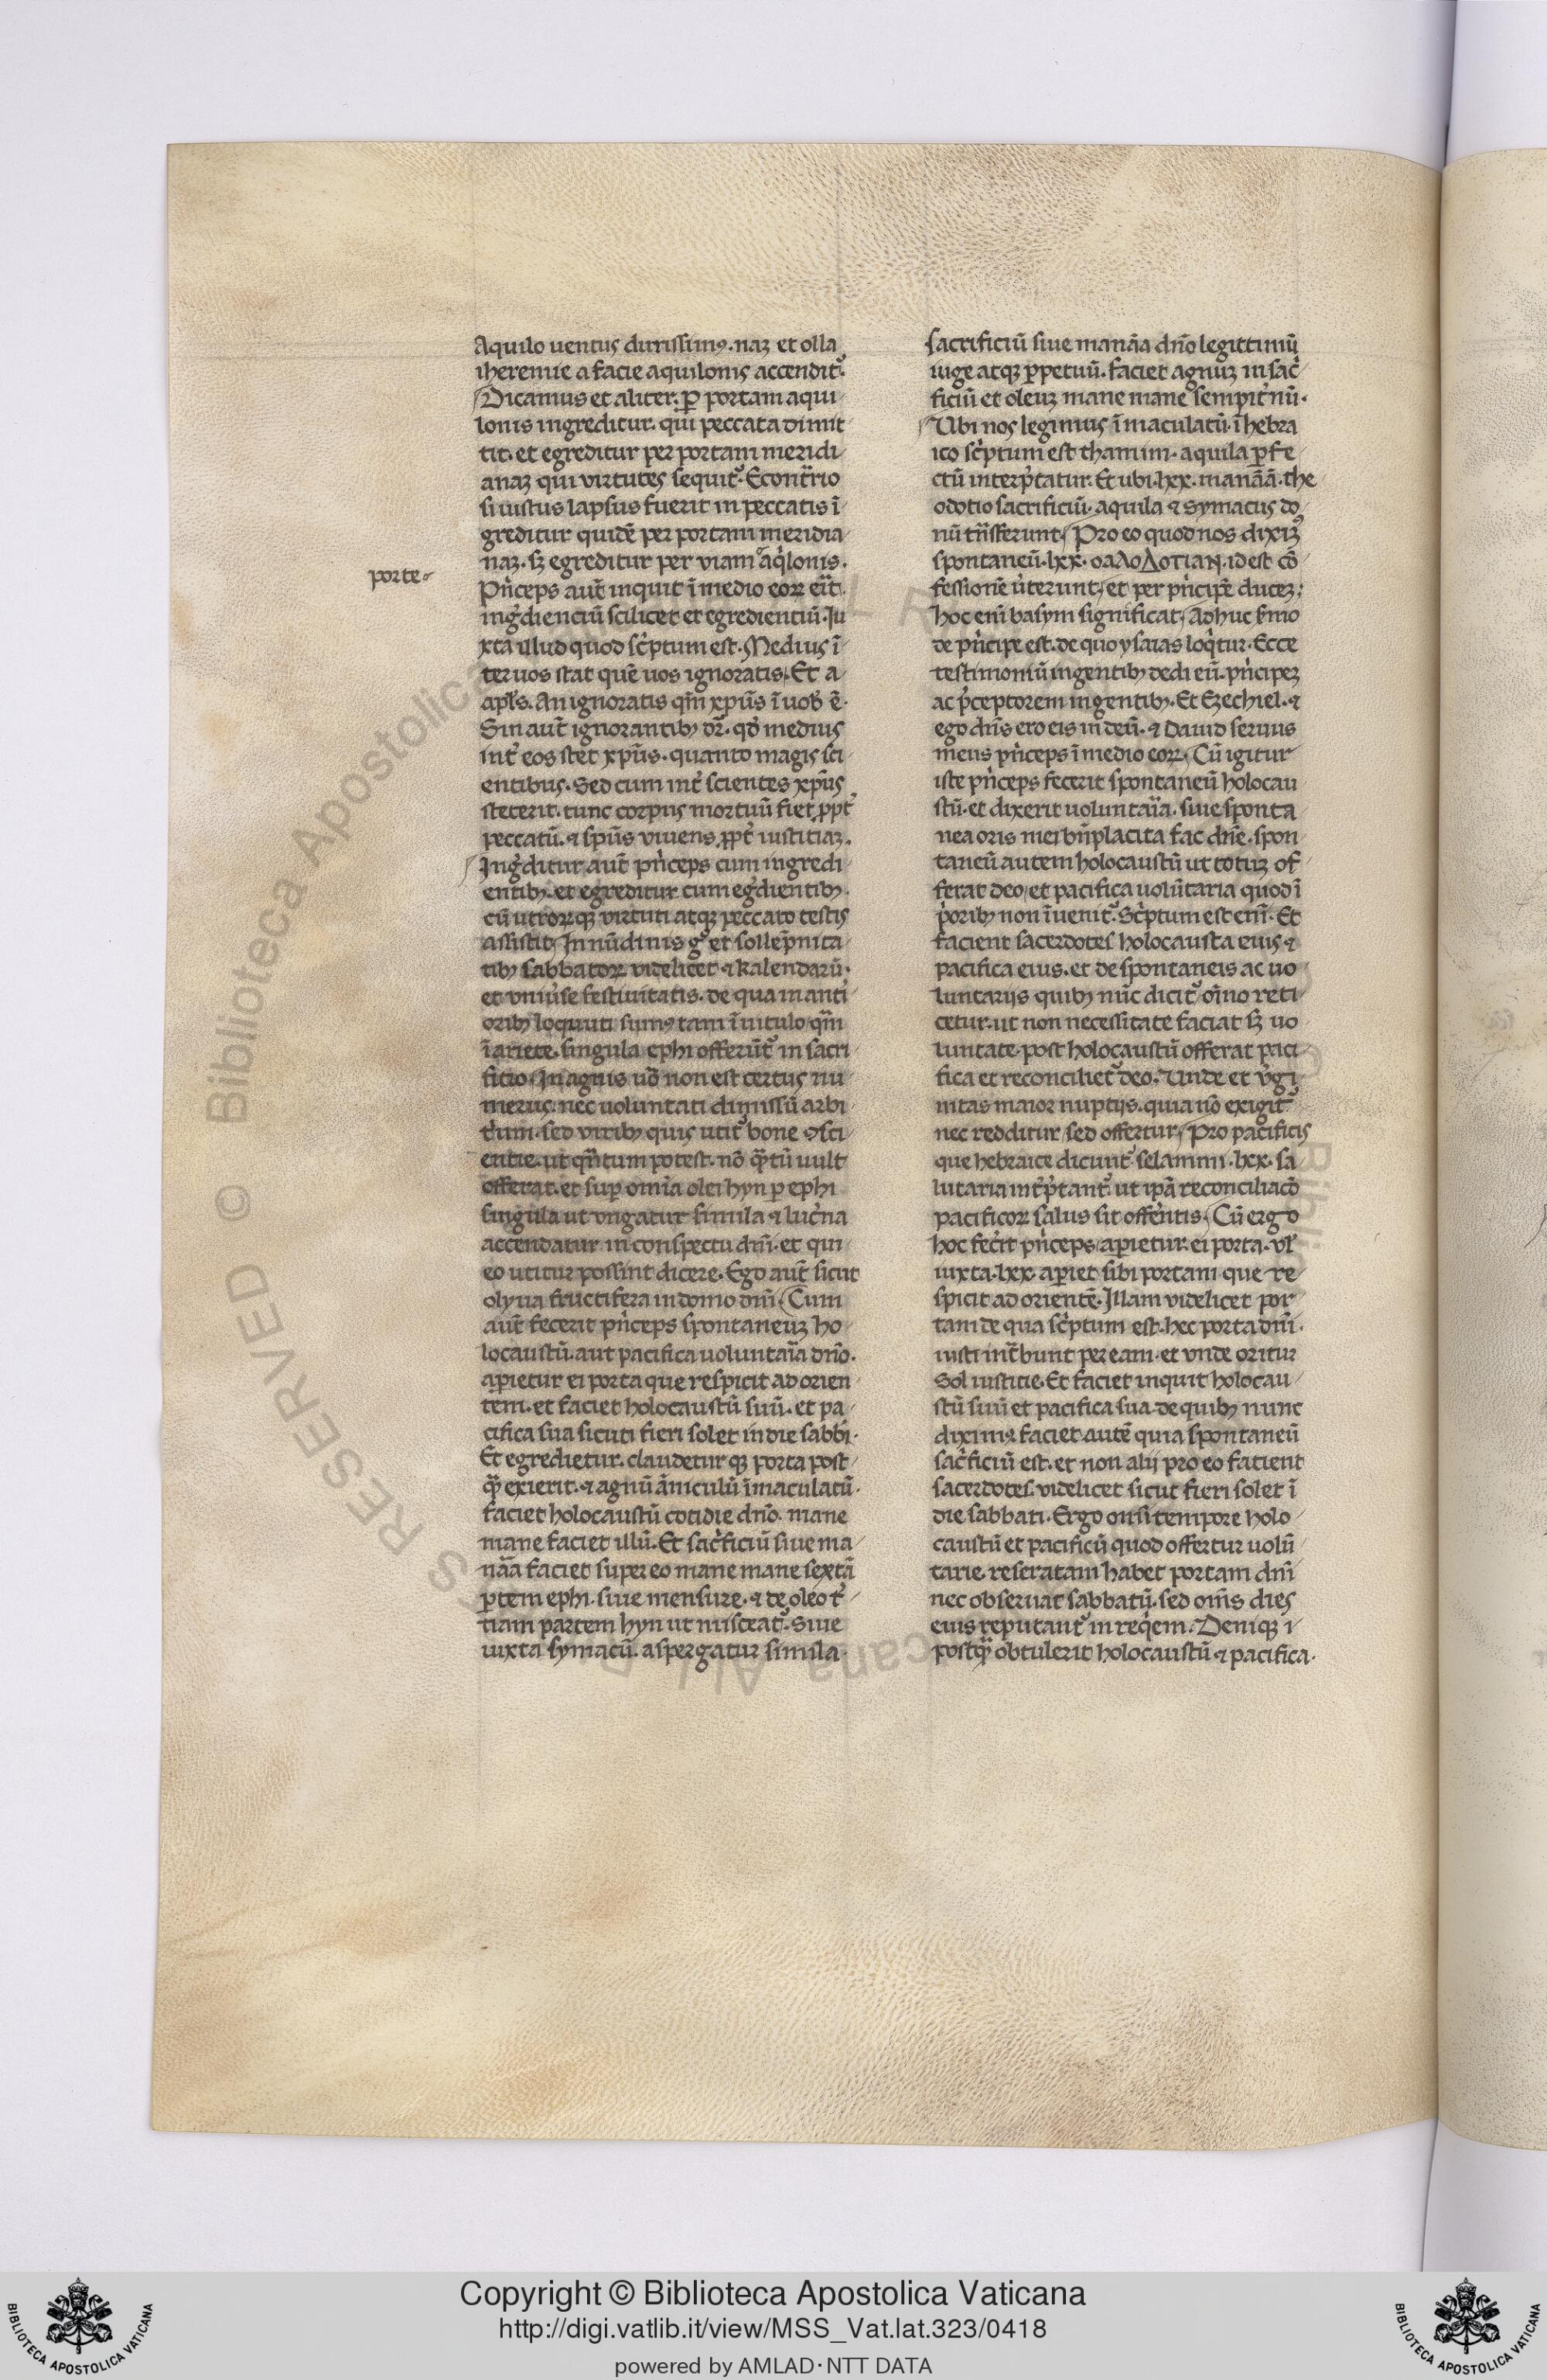 Aquilo uentus durissimꝰ. naꝫ et olla
iheremie a facie aquilonis accendit᷑.
Dicamus et aliter. ꝑ portam aqui
lonis ingreditur. qui peccata dimit
tit. et egreditur per portam meridi
anaꝫ qui virtutes sequit᷑. Econt̃rio
si iustus lapsus fuerit in peccatis ĩ
greditur quidẽ per portam meridia
naꝫ. sꝫ egreditur per viam aq̇lonis.
porte
Pn̍ceps aut̃ inquit ĩ medio eoꝝ erit.
ingr̍dienciũ scilicet et egredienciũ. Iu
xta illud quod sc̍ptum est. Medius ĩ
ter uos stat quẽ uos ignoratis. Et a
apl̃s. An ignoratis qm̃ xp̃us ĩ uob̃ ẽ.
Sin aut̃ ignorantibꝫ dr̃. qđ medius
int̍ eos stet xp̃us. quanto magis sci
entibus. Sed cum int̍ scientes xp̃us
steterit. tunc corpus mortuũ fiet ꝓpt̍
peccatũ. ⁊ sp̃us viuens ꝓpt̍ iustitiaꝫ.
Ingr̍ditur aut̃ pn̍ceps cum ingredi
entibꝫ. et egreditur cum egr̍dientibꝫ.
cũ utroꝝqꝫ virtuti atqꝫ peccato testis
assistit. In nũdinis gͦ et sollẽpnita
tibꝫ sabbatoꝝ videlicet ⁊ kalendarũ.
et vniu̍se festiuitatis. de qua in anti
oribꝫ loquuti sumꝰ tam ĩ uitulo qm̃
ĩ ariete. singula ephi offerũt᷑ in sacri
fitio. In agnis uõ non est certus nu
merus. nec uoluntati dimissũ arbi
t̍um. sed viribꝫ quis utit᷑ bone ꝯsci
entie. ut qñtum potest. nõ qͣtũ uult
offerat. et suꝑ omĩa olei hyn ꝑ ephi
singula ut vngatur simila ⁊ luc̍na
accendatur in conspectu dnĩ. et qui
eo utitur possint dicere. Ego aut̃ sicut
olyua fructifera in domo dnĩ. Cum
aut̃ fecerit pn̍ceps spontaneuꝫ ho
locaustũ. aut pacifica uoluntar̃ia dño.
aꝑietur ei porta que respicit ad orien
tem. et faciet holocaustũ suũ. et pa
cifica sua sicuti fieri solet in die sabbĩ.
Et egredietur. claudeturqꝫ porta post
qͣ̃ exierit. ⁊ agnũ ãniculũ ĩmaculatũ.
faciet holocaustũ cotidie dño. mane
mane faciet illũ. Et sac̍ficiũ siue ma
nãa faciet super eo mane mane sextã
ꝑtem ephi. siue mensure. ⁊ de oleo t̍
tiam partem hyn ut misceat᷑. Siue
iuxta symacũ. aspergatur simila.
sacrificiũ siue manãa dño legittimũ
iuge atqꝫ ꝑpetuũ. faciet agnuꝫ in sac̍
ficiũ et oleuꝫ mane mane sempit̍nũ.
Ubi nos legimus ĩmaculatũ. ĩ hebra
ico sc̍ptum est thamim. aquila ꝑfe
ctũ interp̍tatur. Et ubi. lxx. manãã. the
odotio sacrificiũ. aquila ⁊ symacus do
nũ trñsferunt. Pro eo quod nos dixiꝰ
spontaneũ. lxx. οαλοΔοτιαν. id est cõ
fessionẽ u̍terunt, et per pn̍cipẽ duceꝫ;
hoc enĩ basym significat. Adhuc s̍mo
de pn̍cipe est. de quo ysaias loq̍tur. Ecce
testimoniũ in gentibꝫ dedi eũ. pn̍cipeꝫ
ac p̍ceptorem in gentibꝫ. Et Ezechiel. ⁊
ego dñs ero eis in deũ. ⁊ Dauid seruus
meus pn̍ceps ĩ medio eoꝝ. Cũ igitur
iste pn̍ceps fecerit spontaneũ holocau
stũ. et dixerit uoluntar̃ia. siue sponta
nea oris mei bñplacita fac dñe. spon
taneũ autem holocaustũ ut totuꝫ of
ferat deo, et pacifica uolũtaria quod ĩ
p̍oribꝫ non ĩuenit᷑. Sc̍ptum est enĩ. Et
facient sacerdotes holocausta eius ⁊
pacifica eius. et de spontaneis ac uo
luntarijs quibꝫ nũc dicit᷑ oĩno reti
cetur. ut non necessitate faciat sꝫ uo
luntate. post holocaustũ offerat paci
fica et reconciliet᷑ deo. Unde et v̍gi
nitas maior nuptijs. quia nõ exigit᷑
nec redditur, sed offertur. Pro pacificis
que hebraice dicunt᷑ selamim. lxx. sa
lutaria int̍p̍tant᷑. ut ipã reconciliacõ
pacificoꝝ salus sit offer̍ntis. Cũ ergo
hoc fec̍it pn̍ceps, aꝑietur ei porta. vl̍
iuxta. lxx. aꝑiet sibi portam que re
spicit ad orientẽ. Illam videlicet por
tam de qua sc̍ptum est. hec porta dnĩ.
iusti int̃bunt per eam. et vnde oritur
Sol iustitie. Et faciet inquit holocau
stũ suũ et pacifica sua. de quibꝫ nunc
diximꝰ. faciet autẽ quia spontaneũ
sac̍ficiũ est. et non alij pro eo fatient
sacerdotes. videlicet sicut fieri solet ĩ
die sabbati. Ergo om̃i tempore holo
caustũ et pacificũ quod offertur uolũ
tarie. reseratam habet portam dnĩ
nec obseruat sabbatũ. sed om̃s dies
eius reputant᷑ in req̍em. Deniqꝫ i
postqͣ̃ obtulerit holocaustũ ⁊ pacifica.
Copyright © Biblioteca Apostolica Vaticana
http://digi.vatlib.it/view/MSS_Vat.lat.323/0418
powered by AMLAD·NTT DATA